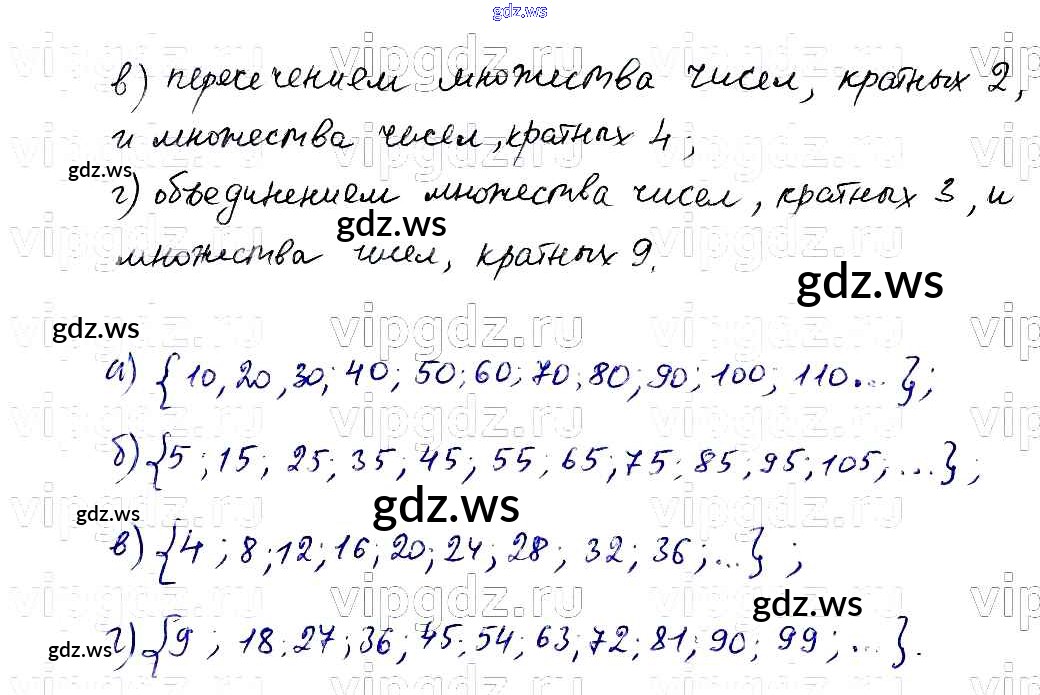 gdz.ws
в) пересечением множества чисел, кратных 2,
и множества чисел, кратных 4;
gdz.ws
г) объединением множества чисел, кратных 3, и
gdz.ws
множества чисел, кратных 9.
gdz.ws
gdz.ws
vipgdz.ru
а) {10, 20, 30; 40; 50; 60; 70; 80; 90; 100; 110... };
б) {5; 15; 25; 35; 45; 55; 65; 75; 85; 95; 105; ...};
gdz.ws
gdz.ws
в) {4; 8; 12; 16; 20; 24; 28; 32; 36; ...};
gdz.ws
г) {9; 18; 27; 36; 45; 54; 63; 72; 81; 90; 99; ...}.
gdz.ws